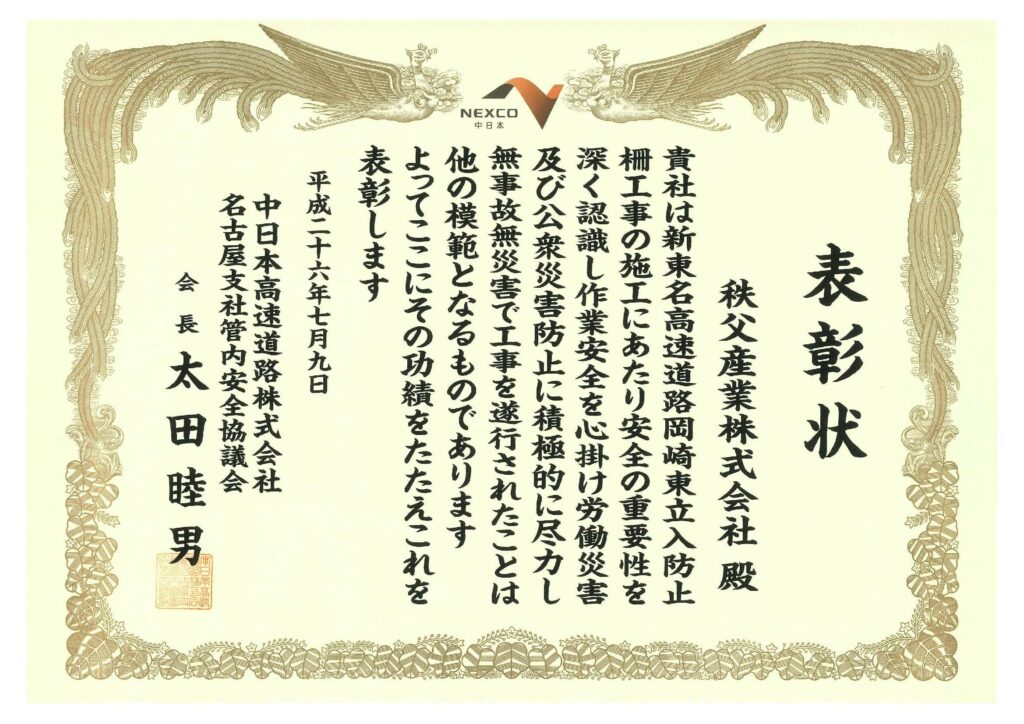 NEXCO
中日本
表彰状
秩父産業株式会社 殿
貴社は新東名高速道路岡崎東立入防止
柵工事の施工にあたり安全の重要性を
深く認識し作業安全を心掛け労働災害
及び公衆災害防止に積極的に尽力し
無事故無災害で工事を遂行されたことは
他の模範となるものであります
よってここにその功績をたたえこれを
表彰します
平成二十六年七月九日
中日本高速道路株式会社
名古屋支社管内安全協議会
会長 太田睦男